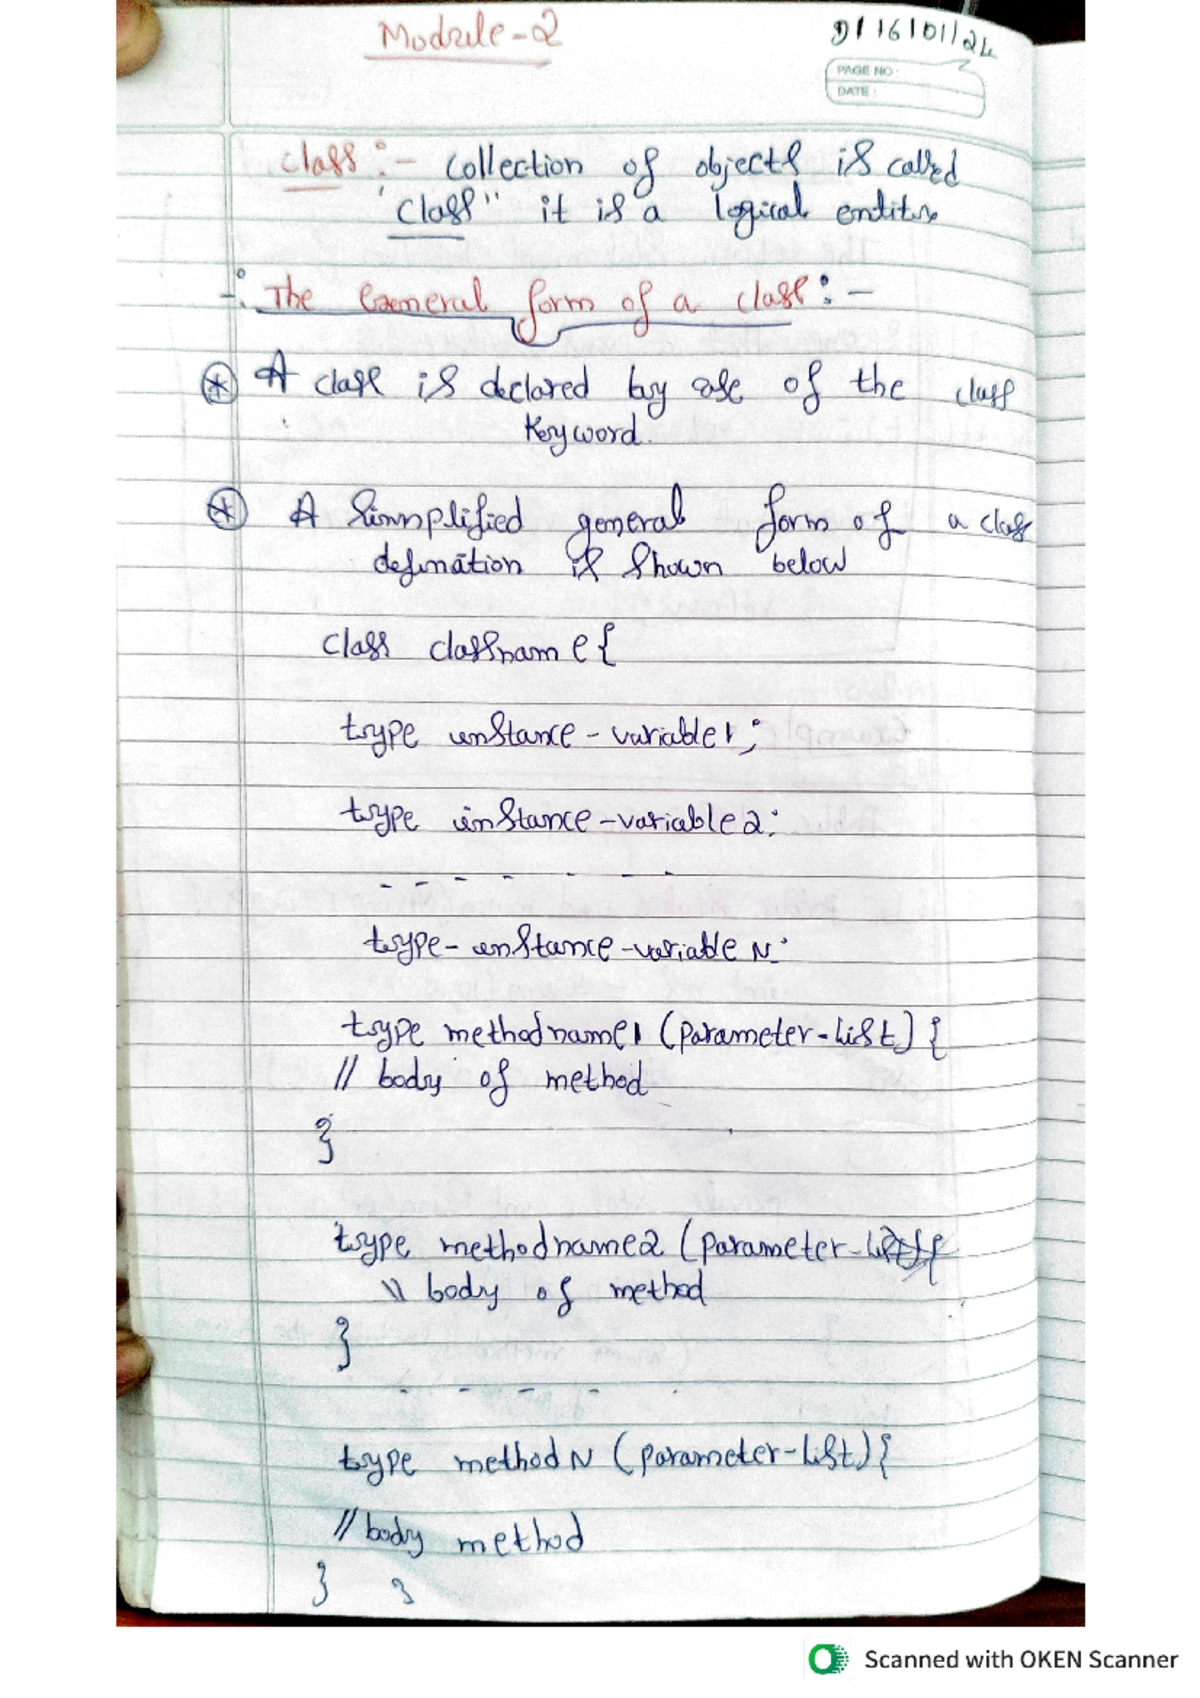 Module-2
D/ 16/01/24
PAGE NO:
DATE:
class :- Collection of objects is called
'class" it is a logical entity
-: The General form of a class :-
* A class is declared by use of the class
Keyword.
* A Simnplified general form of a class
defination is shown below
class classname {
type instance-variable1;
type instance-variable2;
- - - - - - -
type-instance-variable N;
type methodname1 (parameter-list) {
// body of method
}
type methodname2 (parameter-list) {
\\ body of method
}
- - - - -
type method N (parameter-list) {
// body method
} }
Scanned with OKEN Scanner